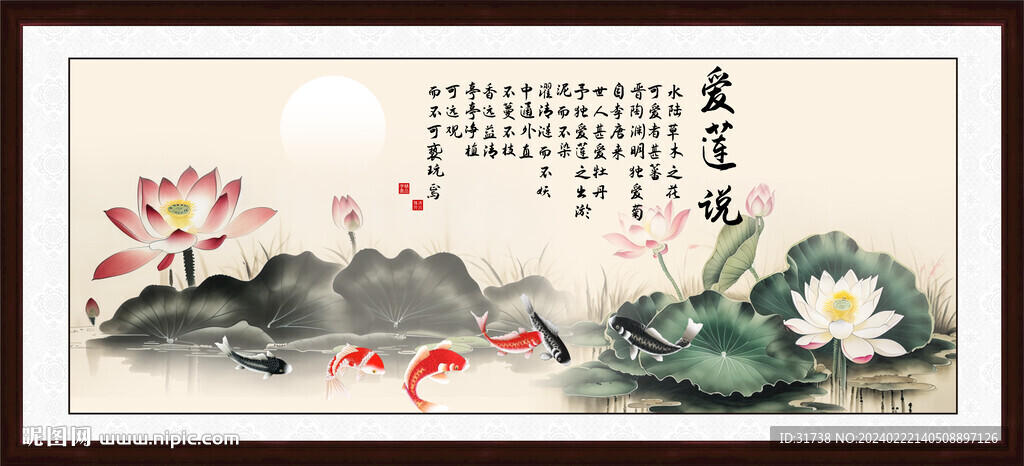 爱莲说
水陆草木之花
可爱者甚蕃
晋陶渊明独爱菊
自李唐来
世人甚爱牡丹
予独爱莲之出淤
泥而不染
濯清涟而不妖
中通外直
不蔓不枝
香远益清
亭亭净植
可远观
而不可亵玩焉
昵图网 www.nipic.com
ID:31738 NO:20240222140508897126